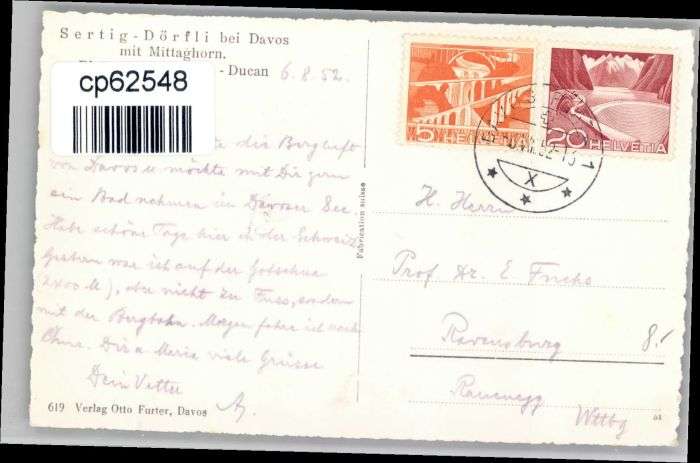 Sertig-Dörfli bei Davos
mit Mittaghorn,
- Ducan 6.8.52.
cp62548
die Bergluft
von Davos u. möchte mit Dir gern
ein Bad nehmen im Davoser See.
Habe schöne Tage hier in der Schweiz.
Gestern war ich auf der Gotschna
2400 M), aber nicht zu Fuss, sondern
mit der Bergbahn. Morgen fahre ich nach
Dir u. Maria viele Grüsse
Dein Vetter
619 Verlag Otto Furter, Davos
Fabrication suisse
5
HELVETIA
20 HELVETIA
52
X
H. Herrn
Prof. Dr. E. Fuchs
Ravensburg
8.-
Rauenegg
Wttbg